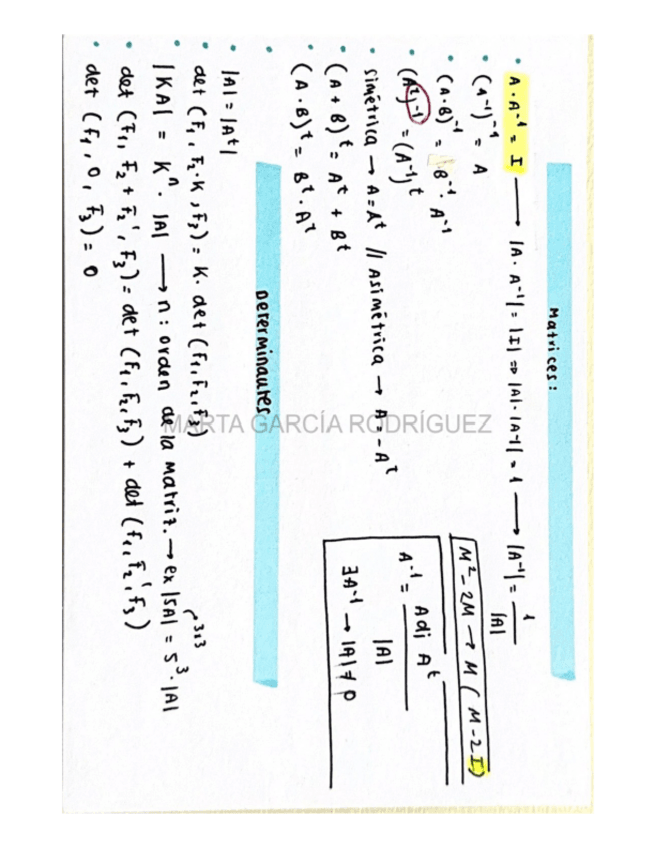 Matrices:
A · A⁻¹ = I → |A · A⁻¹| = |I| ⇒ |A| · |A⁻¹| = 1 → |A⁻¹| = 1/|A|
(A⁻¹)⁻¹ = A
(A·B)⁻¹ = B⁻¹ · A⁻¹
(Aᵗ)⁻¹ = (A⁻¹)ᵗ
simétrica → A = Aᵗ // Asimétrica → A = -Aᵗ
(A + B)ᵗ = Aᵗ + Bᵗ
(A · B)ᵗ = Bᵗ · Aᵗ
M² - 2M → M (M - 2I)
A⁻¹ = Adj Aᵗ / |A|
∃A⁻¹ → |A| ≠ 0
Determinantes
|A| = |Aᵗ|
det (F₁, F₂·K, F₃) = K · det (F₁, F₂, F₃)
|KA| = Kⁿ · |A| → n: orden de la matriz. → ex |5A| = 5³ · |A|
3x3
det (F₁, F₂ + F₂', F₃) = det (F₁, F₂, F₃) + det (F₁, F₂', F₃)
det (F₁, 0, F₃) = 0
MARTA GARCÍA RODRÍGUEZ